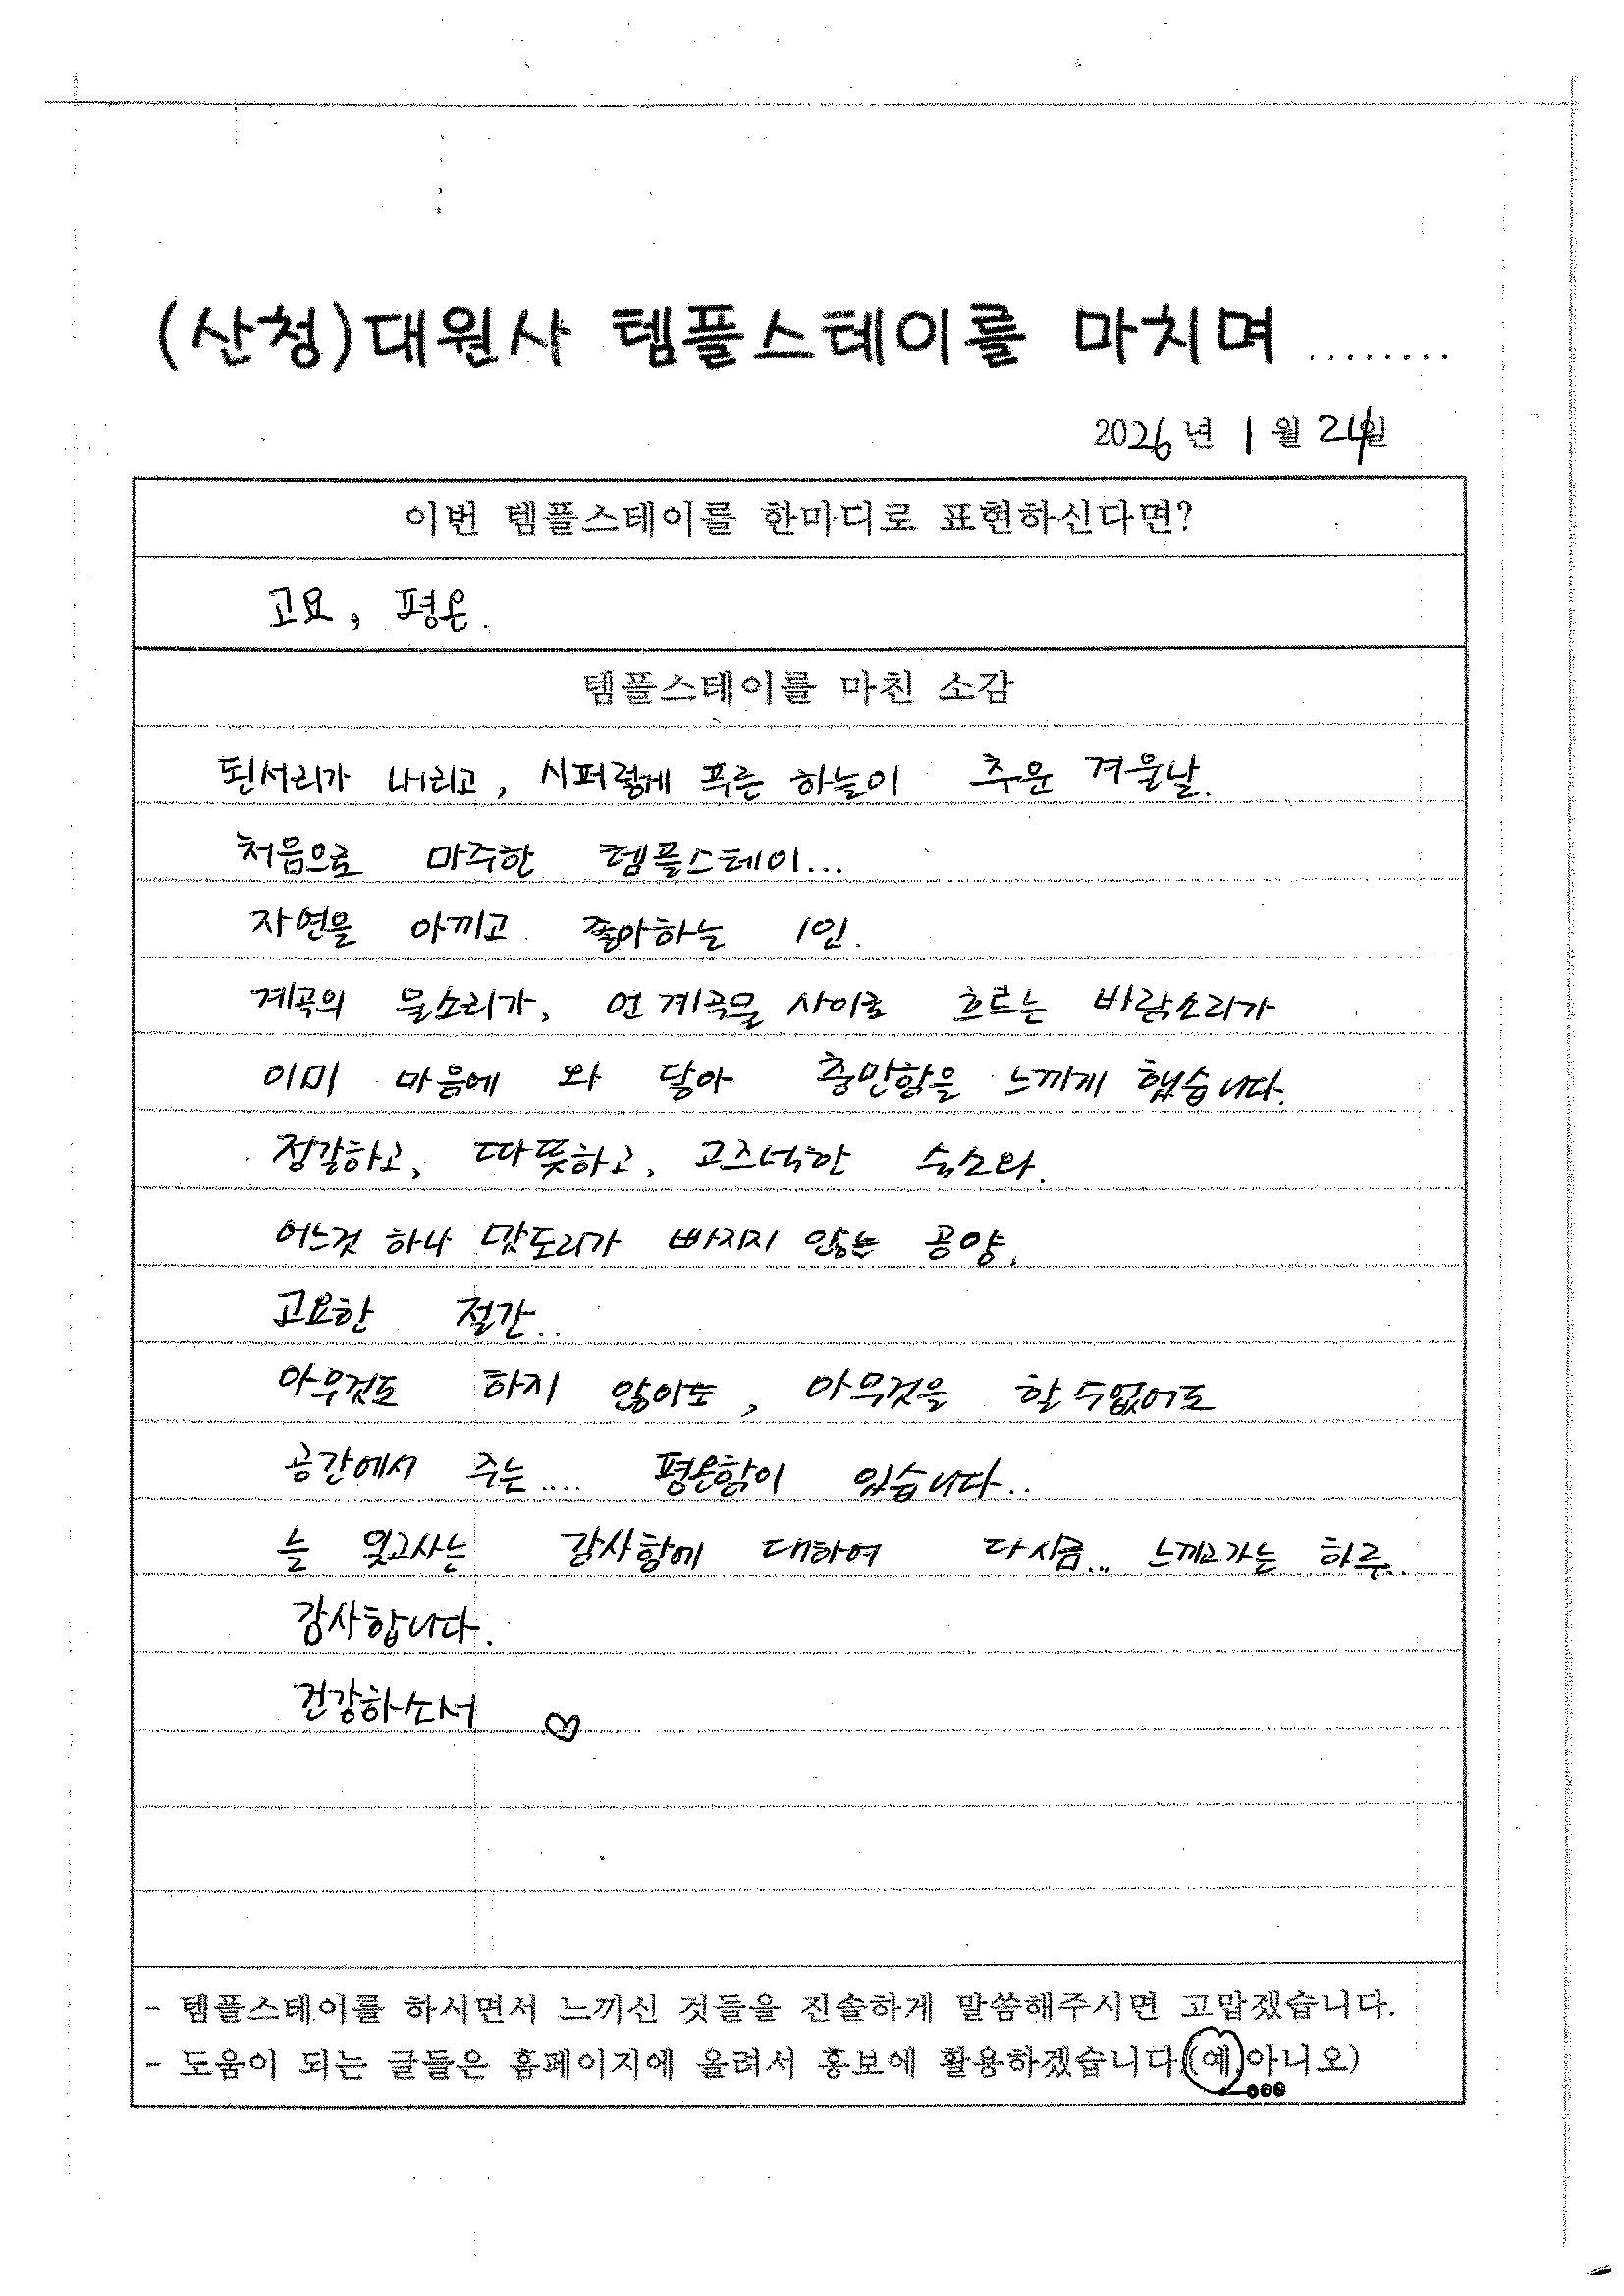 (산청)대원사 템플스테이를 마치며 ........
2026년 1월 24일
이번 템플스테이를 한마디로 표현하신다면?
고요, 평온.
템플스테이를 마친 소감
된서리가 내리고, 시퍼렇게 푸른 하늘이 추운 겨울날.
처음으로 마주한 템플스테이...
자연을 아끼고 좋아하는 1인.
계곡의 물소리가, 언 계곡물 사이로 흐르는 바람소리가
이미 마음에 와 닿아 충만함을 느끼게 했습니다.
정갈하고, 따뜻하고, 고즈넉한 숙소와.
어느것 하나 맛도리가 빠지지 않는 공양.
고요한 절간..
아무것도 하지 않아도, 아무것을 할 수없어도
공간에서 주는.... 평온함이 있습니다..
늘 잊고사는 감사함에 대하여 다시금... 느끼고가는 하루..
감사합니다.
건강하소서 ♡
- 템플스테이를 하시면서 느끼신 것들을 진솔하게 말씀해주시면 고맙겠습니다.
- 도움이 되는 글들은 홈페이지에 올려서 홍보에 활용하겠습니다.(예,아니오)